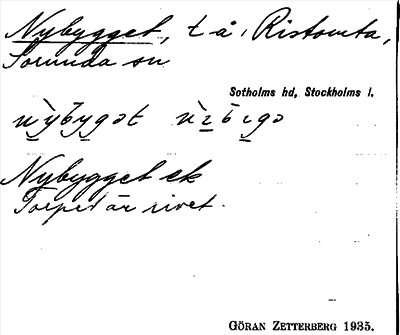 Nybygget, t å, Ristomta,
Sorunda sn
Sotholms hd, Stockholms l.
Nybygget ek
Torpet är rivet.
GÖRAN ZETTERBERG 1935.